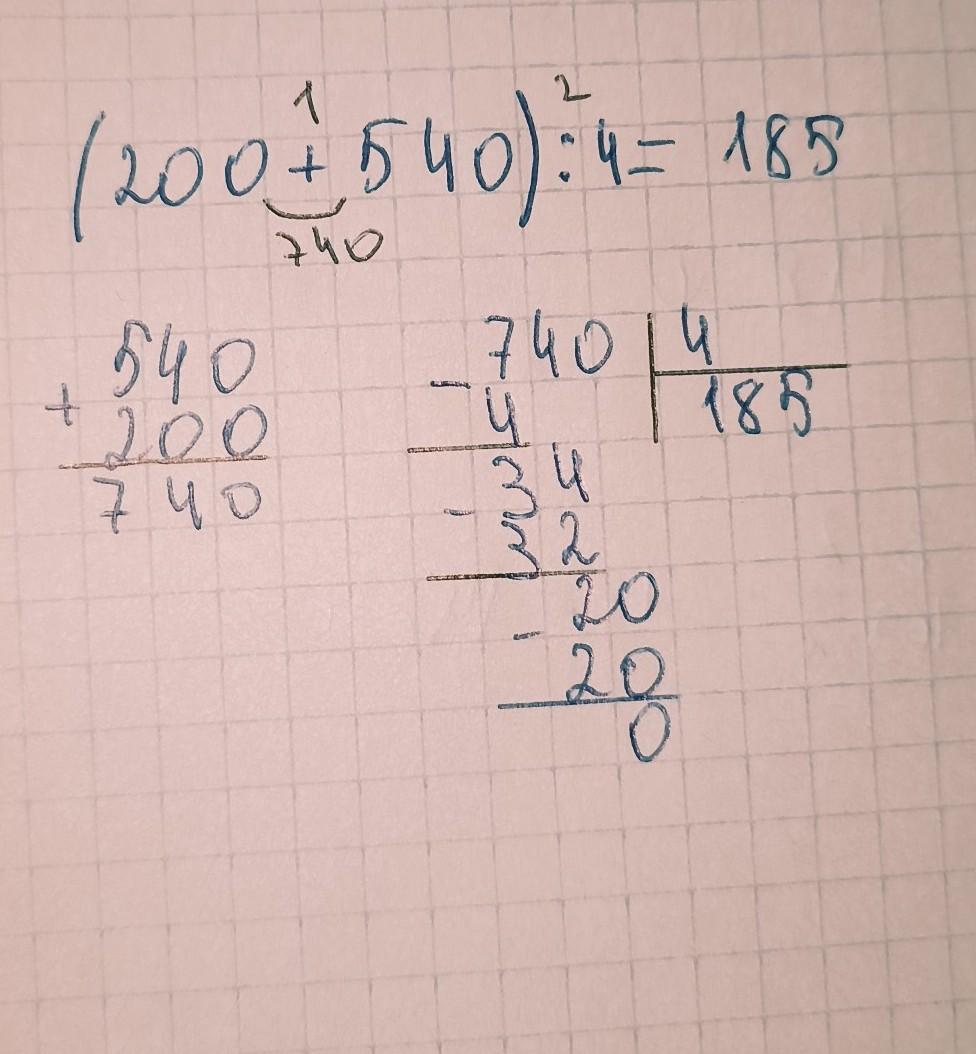 1 2
(200+540):4= 185
740
540
+
200
740
-740 4
4 185
-34
32
-20
20
0